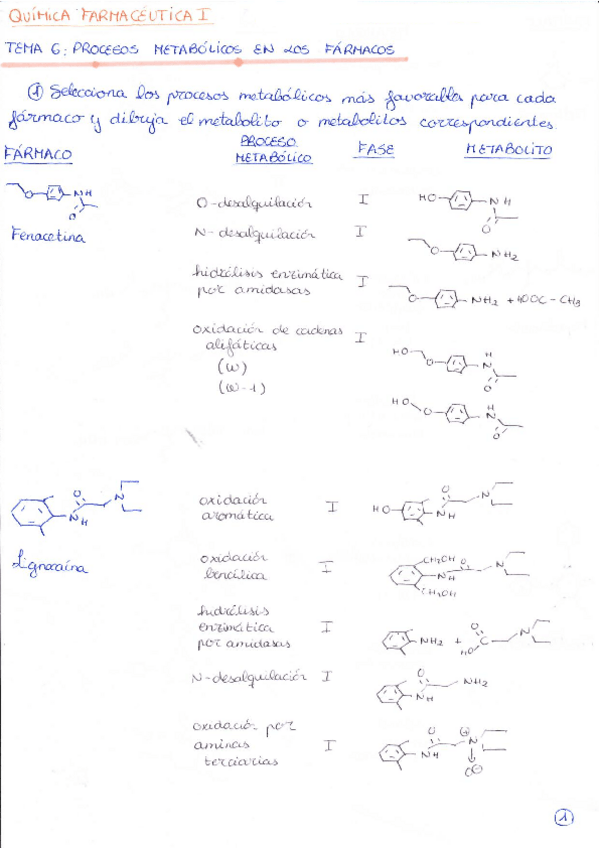 QUÍMICA FARMACÉUTICA I
TEMA 6: PROCESOS METABÓLICOS EN LOS FÁRMACOS
① Selecciona los procesos metabólicos más favorables para cada
fármaco y dibuja el metabolito o metabolitos correspondientes.
FÁRMACO PROCESO METABÓLICO FASE METABOLITO
Fenacetina
O-desalquilación I
N-desalquilación I
hidrólisis enzimática I
por amidasas
oxidación de cadenas I
alifáticas
(ω)
(ω-1)
O NH O
HO NH O
O NH2
O NH2 + HOOC-CH3
HO O H N O
HO O H N O
Lignocaína
oxidación I
aromática
oxidación I
bencílica
hidrólisis
enzimática I
por amidasas
N-desalquilación I
oxidación por
aminas I
terciarias
O N NH
HO O N NH
CH2OH O N NH
CH2OH
NH2 + O HO C N
O NH2 NH
O N NH O
①